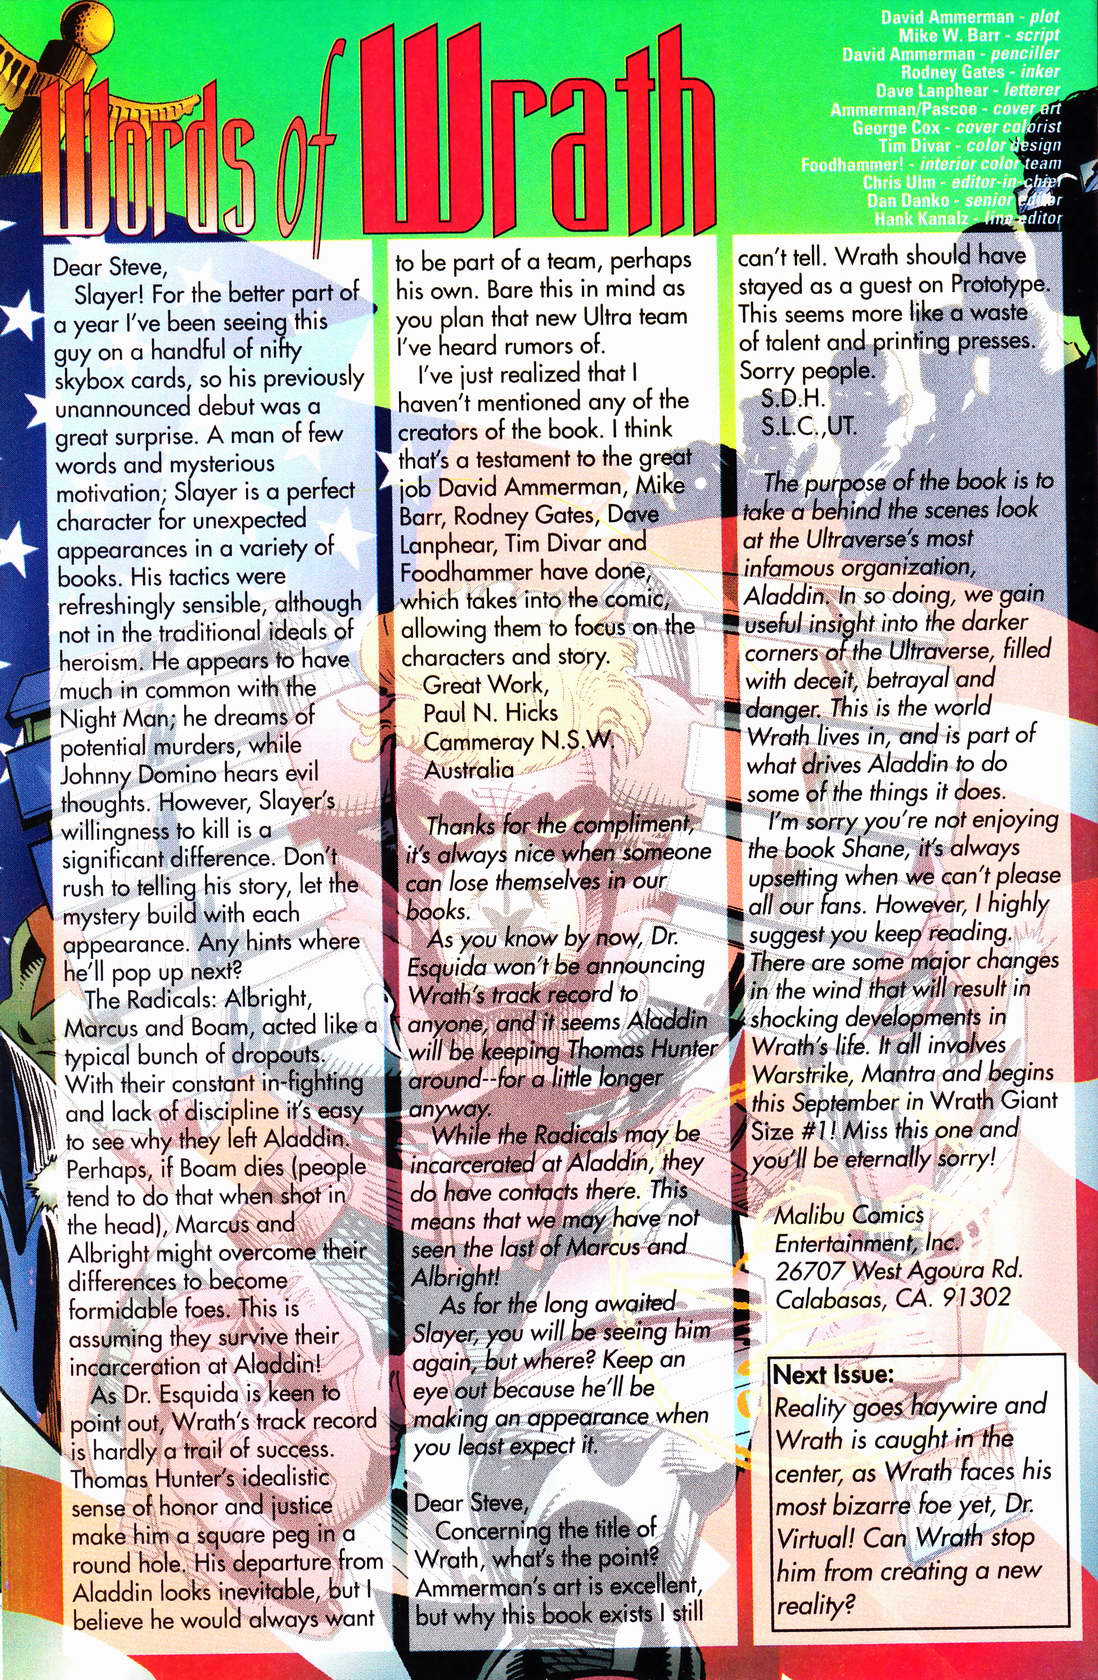 Words of Wrath
David Ammerman - plot
Mike W. Barr - script
David Ammerman - penciller
Rodney Gates - inker
Dave Lanphear - letterer
Ammerman/Pascoe - cover art
George Cox - cover colorist
Tim Divar - color design
Foodhammer! - interior color team
Chris Ulm - editor-in-chief
Dan Danko - senior editor
Hank Kanalz - line editor
Dear Steve,
Slayer! For the better part of
a year I've been seeing this
guy on a handful of nifty
skybox cards, so his previously
unannounced debut was a
great surprise. A man of few
words and mysterious
motivation; Slayer is a perfect
character for unexpected
appearances in a variety of
books. His tactics were
refreshingly sensible, although
not in the traditional ideals of
heroism. He appears to have
much in common with the
Night Man; he dreams of
potential murders, while
Johnny Domino hears evil
thoughts. However, Slayer's
willingness to kill is a
significant difference. Don't
rush to telling his story, let the
mystery build with each
appearance. Any hints where
he'll pop up next?
The Radicals: Albright,
Marcus and Boam, acted like a
typical bunch of dropouts.
With their constant in-fighting
and lack of discipline it's easy
to see why they left Aladdin.
Perhaps, if Boam dies (people
tend to do that when shot in
the head), Marcus and
Albright might overcome their
differences to become
formidable foes. This is
assuming they survive their
incarceration at Aladdin!
As Dr. Esquida is keen to
point out, Wrath's track record
is hardly a trail of success.
Thomas Hunter's idealistic
sense of honor and justice
make him a square peg in a
round hole. His departure from
Aladdin looks inevitable, but I
believe he would always want
to be part of a team, perhaps
his own. Bare this in mind as
you plan that new Ultra team
I've heard rumors of.
I've just realized that I
haven't mentioned any of the
creators of the book. I think
that's a testament to the great
job David Ammerman, Mike
Barr, Rodney Gates, Dave
Lanphear, Tim Divar and
Foodhammer have done,
which takes into the comic,
allowing them to focus on the
characters and story.
Great Work,
Paul N. Hicks
Cammeray N.S.W.
Australia
Thanks for the compliment,
it's always nice when someone
can lose themselves in our
books.
As you know by now, Dr.
Esquida won't be announcing
Wrath's track record to
anyone, and it seems Aladdin
will be keeping Thomas Hunter
around--for a little longer
anyway.
While the Radicals may be
incarcerated at Aladdin, they
do have contacts there. This
means that we may have not
seen the last of Marcus and
Albright!
As for the long awaited
Slayer, you will be seeing him
again, but where? Keep an
eye out because he'll be
making an appearance when
you least expect it.
Dear Steve,
Concerning the title of
Wrath, what's the point?
Ammerman's art is excellent,
but why this book exists I still
can't tell. Wrath should have
stayed as a guest on Prototype.
This seems more like a waste
of talent and printing presses.
Sorry people.
S.D.H.
S.L.C.,UT.
The purpose of the book is to
take a behind the scenes look
at the Ultraverse's most
infamous organization,
Aladdin. In so doing, we gain
useful insight into the darker
corners of the Ultraverse, filled
with deceit, betrayal and
danger. This is the world
Wrath lives in, and is part of
what drives Aladdin to do
some of the things it does.
I'm sorry you're not enjoying
the book Shane, it's always
upsetting when we can't please
all our fans. However, I highly
suggest you keep reading.
There are some major changes
in the wind that will result in
shocking developments in
Wrath's life. It all involves
Warstrike, Mantra and begins
this September in Wrath Giant
Size #1! Miss this one and
you'll be eternally sorry!
Malibu Comics
Entertainment, Inc.
26707 West Agoura Rd.
Calabasas, CA. 91302
Next Issue:
Reality goes haywire and
Wrath is caught in the
center, as Wrath faces his
most bizarre foe yet, Dr.
Virtual! Can Wrath stop
him from creating a new
reality?